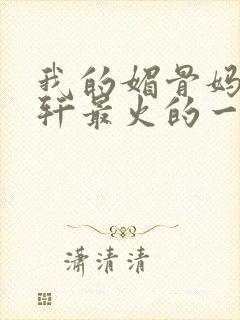 我的媚骨妈
轩最火的一
潇清清